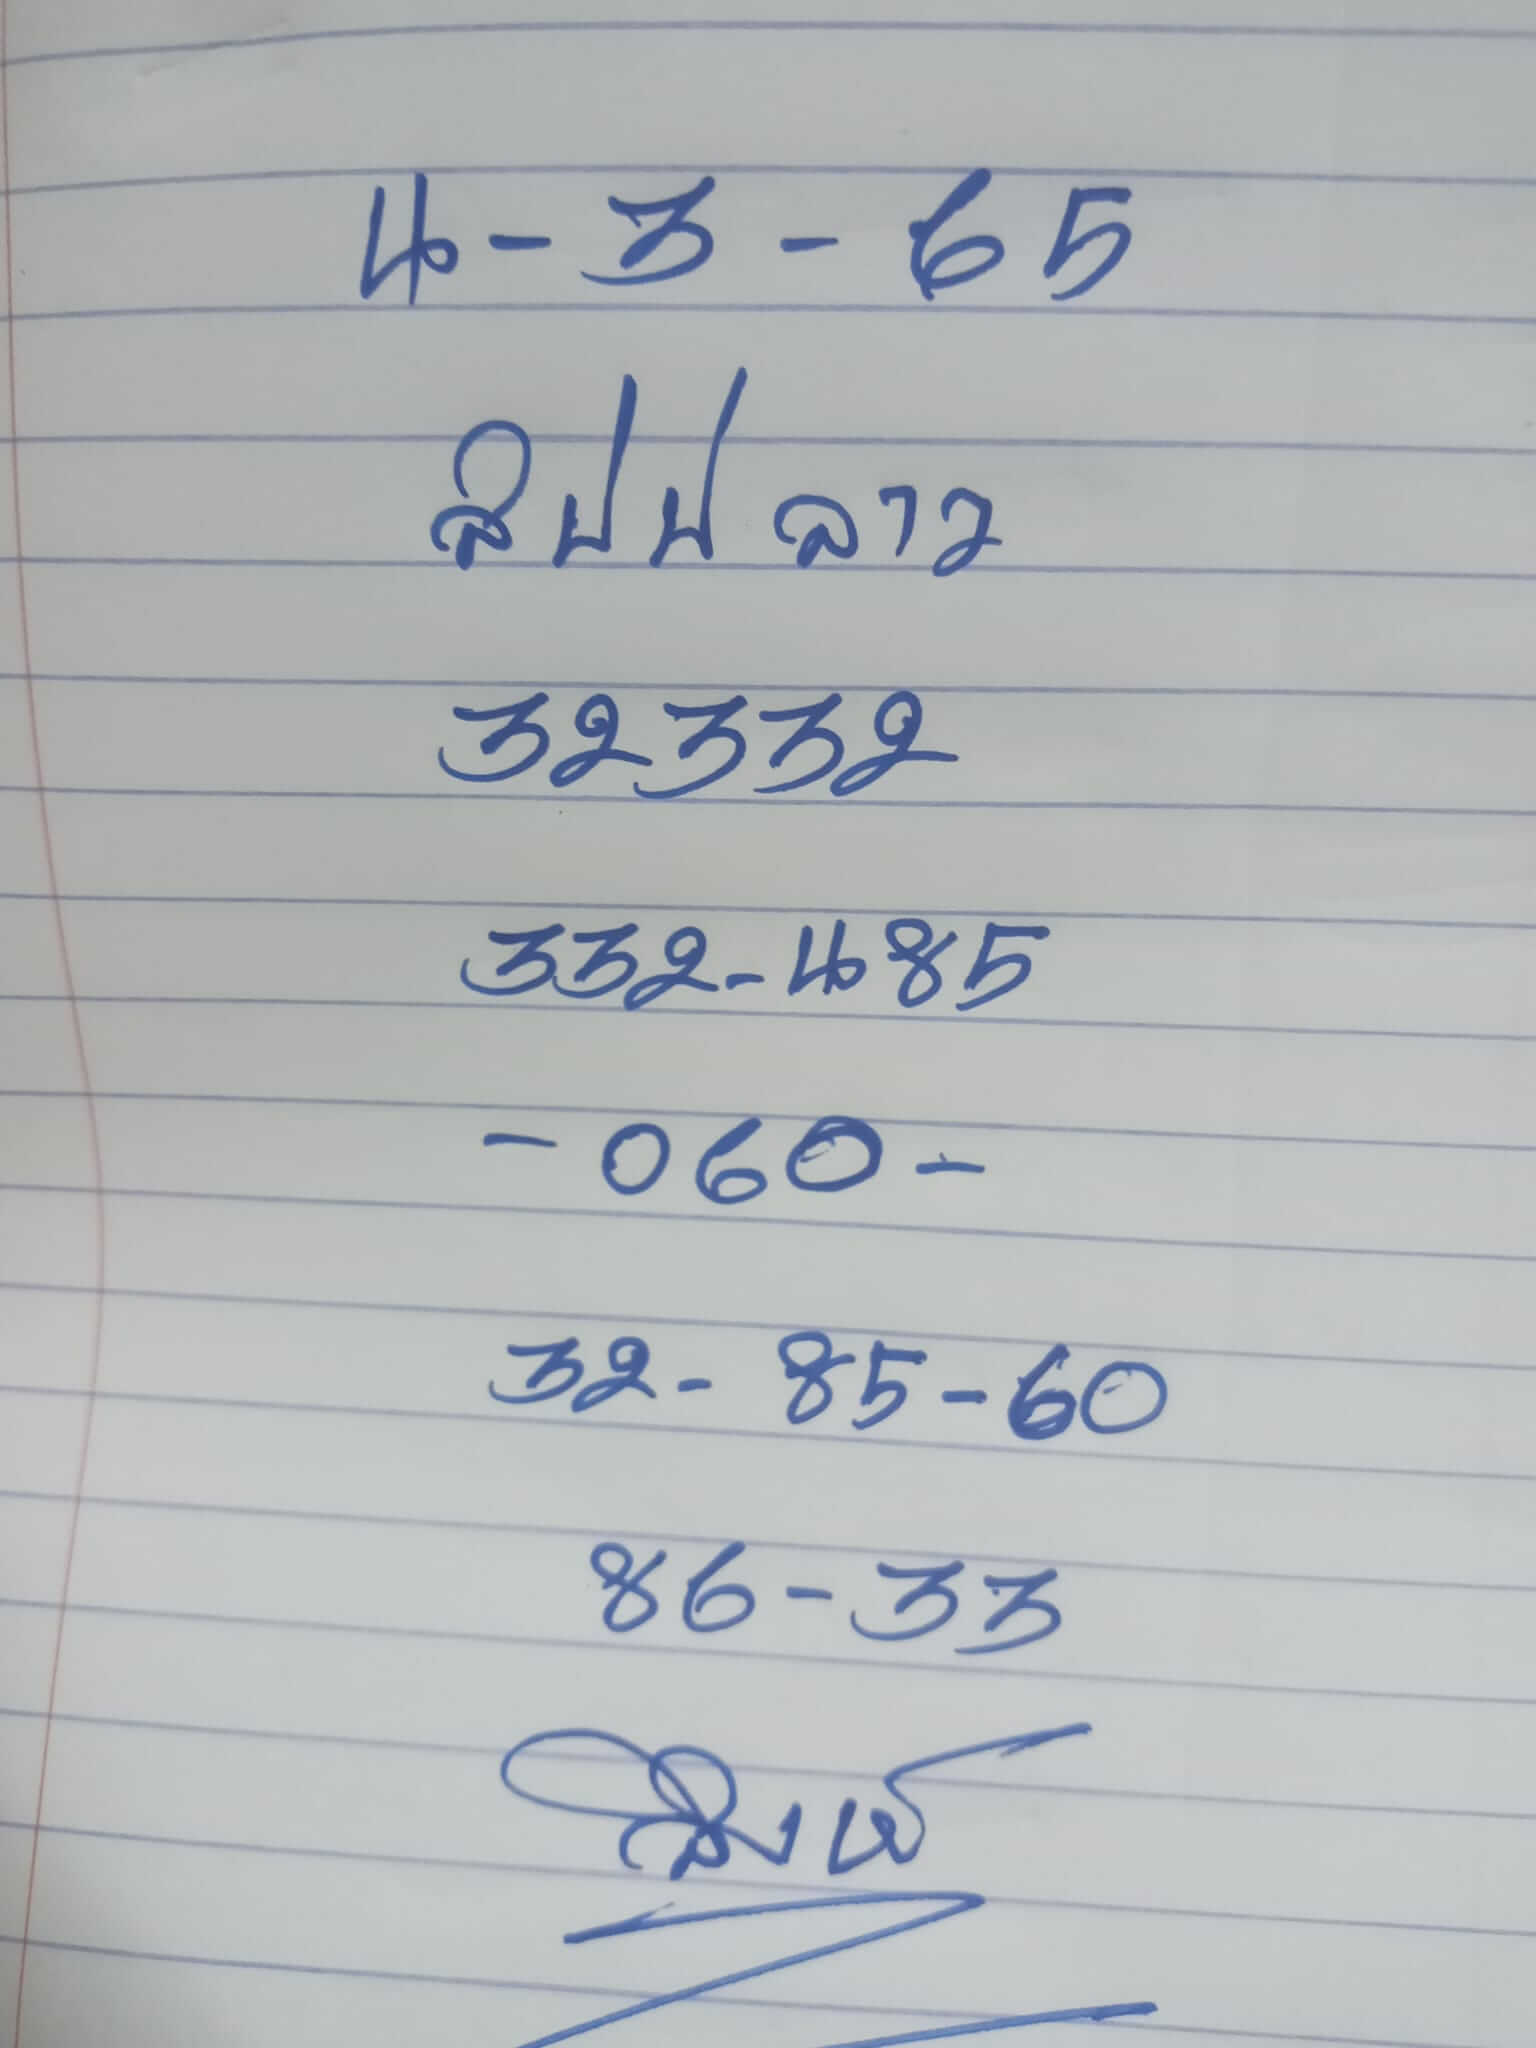 4-3-65
สปป ลาว
32332
332-485
-060-
32-85-60
86-33
สิงห์